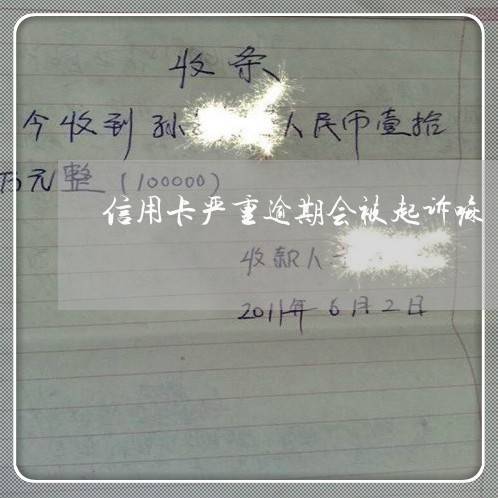 收条
今收到孙 人民币壹拾
万元整(100000)
信用卡严重逾期会被起诉嘛
收款人
2011年6月2日